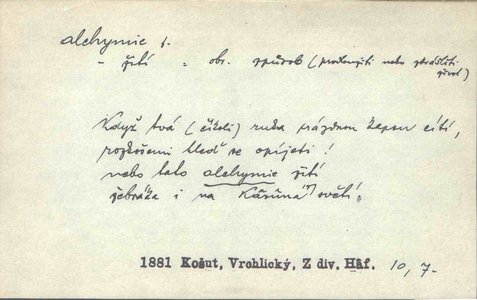 alchymie f.
- žití = obr. způsob (prodloužiti nebo zkrášliti
život)
Když tvá (čísi) ruka prázdnou kapsu cítí,
rozkošemi hleď se opíjeti!
nebo tato alchymie žití
žebráka i na Kârúna světí.
1881 Košut, Vrchlický, Z div. Háf. 10, 7.